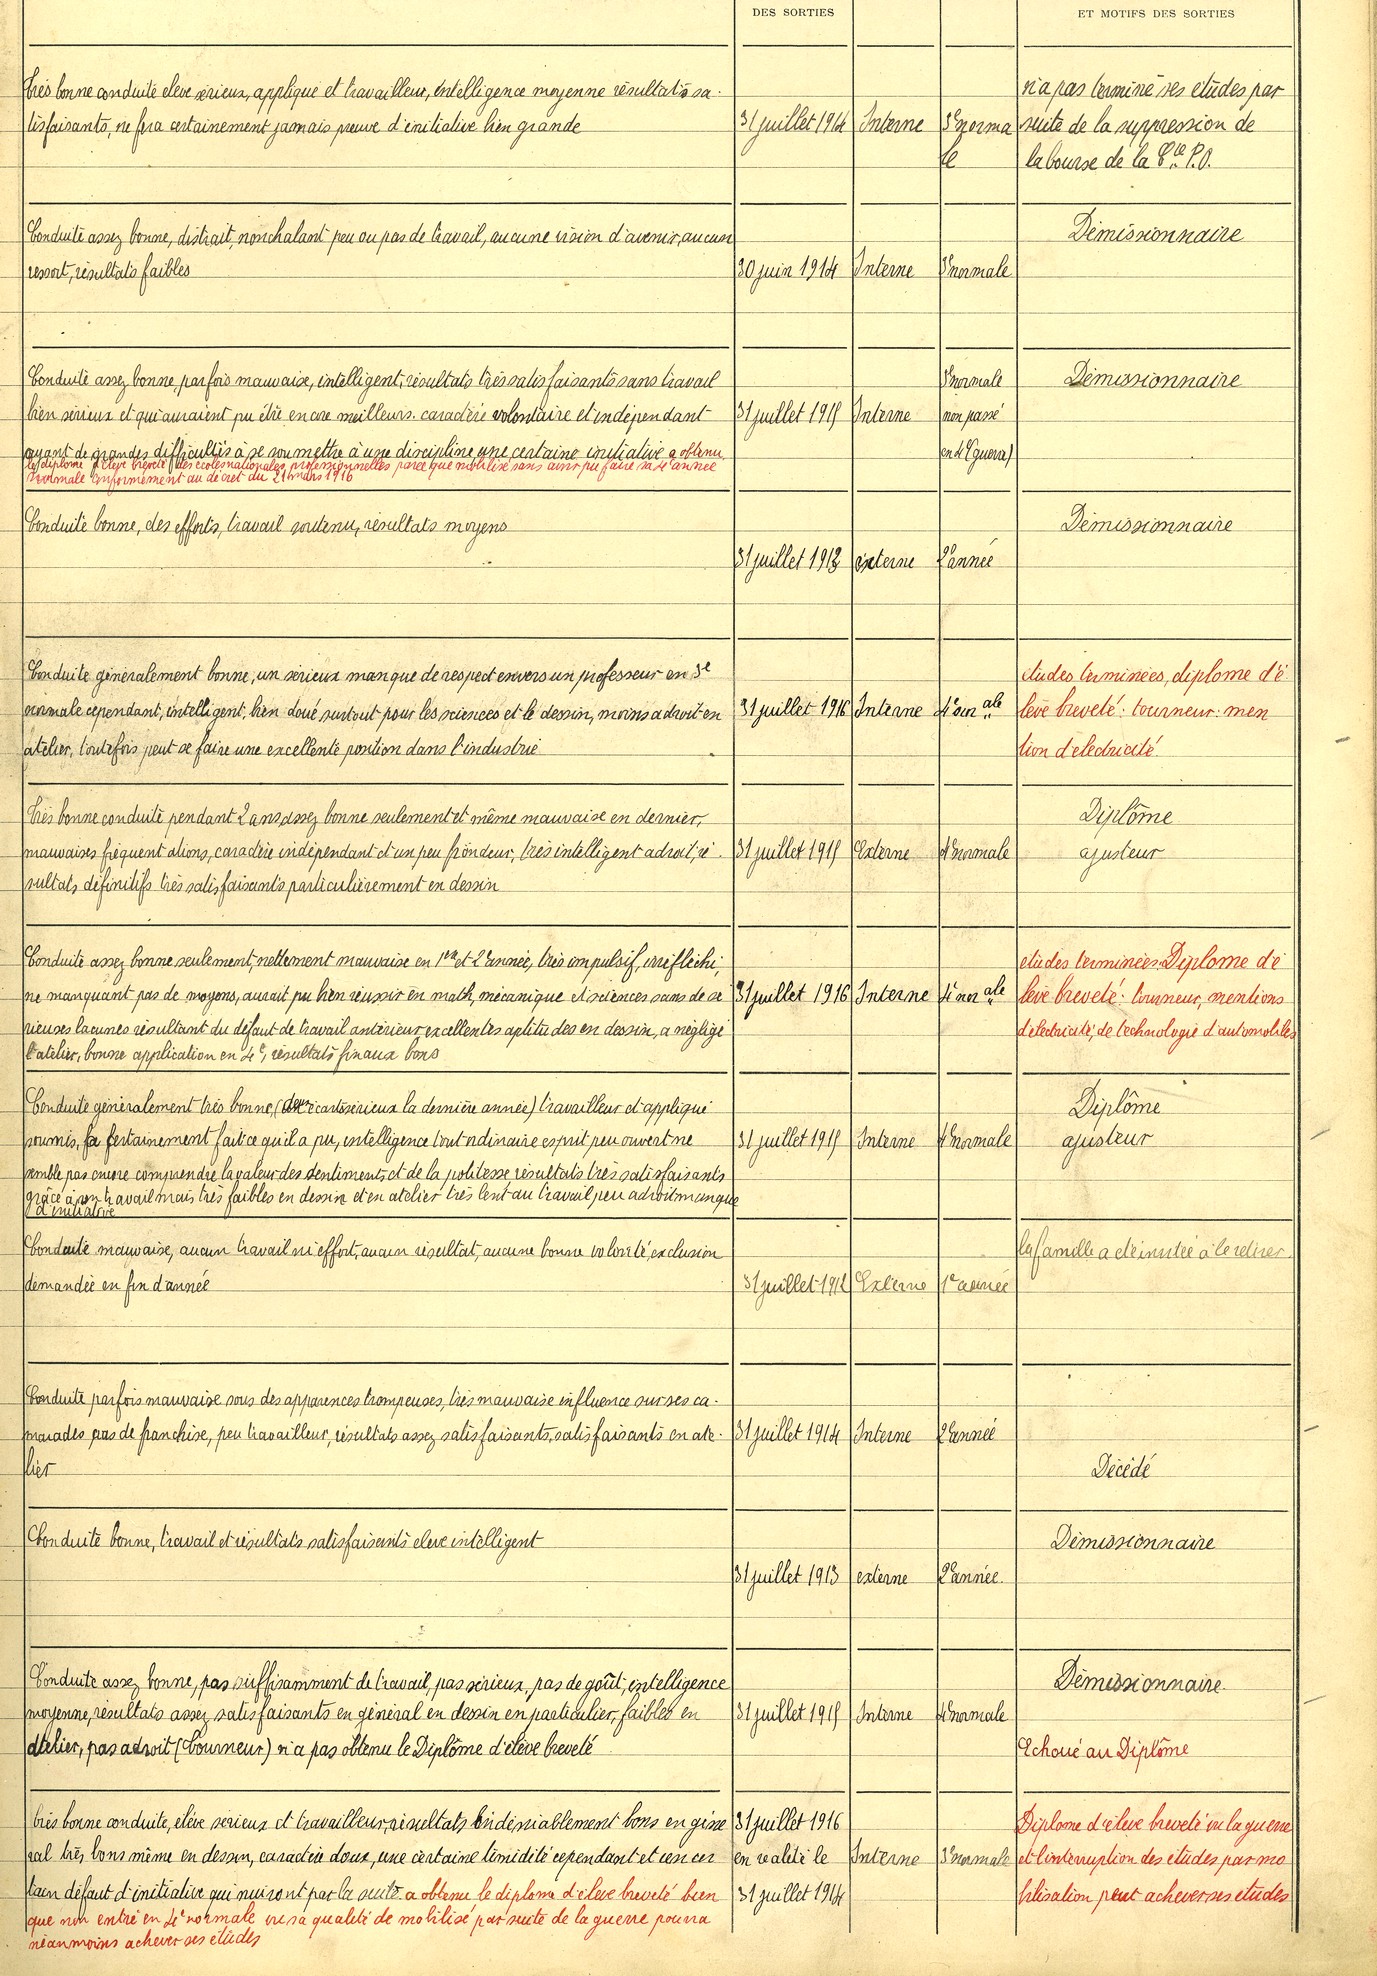 DES SORTIES
ET MOTIFS DES SORTIES
Très bonne conduite élève sérieux, appliqué et travailleur, intelligence moyenne résultats sa-
tisfaisants, ne fera certainement jamais preuve d'initiative bien grande
31 juillet 1914
Interne
3e norma
le
n'a pas terminé ses études par
suite de la suppression de
la bourse de la Cie P.O.
Conduite assez bonne, distrait, nonchalant peu ou pas de travail, aucune vision d'avenir, aucun
ressort, résultats faibles
30 juin 1914
Interne
3e normale
Démissionnaire
Conduite assez bonne, parfois mauvaise, intelligent, résultats très satisfaisants sans travail
bien sérieux et qui auraient pu être encore meilleurs. caractère volontaire et indépendant
ayant de grandes difficultés à se soumettre à une discipline, une certaine initiative a obtenu
le diplome d'élève breveté des écoles nationales professionnelles parce que mobilisé sans avoir pu faire sa 4e année
normale conformément au décret du 21 mars 1916
31 juillet 1915
Interne
3e normale
non passé
en 4e (guerre)
Démissionnaire
Conduite bonne, des efforts, travail soutenu, résultats moyens
31 juillet 1913
externe
2e année
Démissionnaire
Conduite généralement bonne, un sérieux manque de respect envers un professeur en 3e
normale cependant, intelligent, bien doué surtout pour les sciences et le dessin, moins adroit en
atelier, toutefois peut se faire une excellente position dans l'industrie
31 juillet 1916
Interne
4e nor ale
études terminées, diplome d'é
lève breveté: tourneur: men
tion d'électricité
Très bonne conduite pendant 2 ans, assez bonne seulement et même mauvaise en dernier,
mauvaises fréquentations, caractère indépendant et un peu frondeur, très intelligent adroit, ré-
sultats définitifs très satisfaisants particulièrement en dessin
31 juillet 1915
Externe
4e normale
Diplôme
ajusteur
Conduite assez bonne seulement, nettement mauvaise en 1ère et 2e année, très impulsif, irréfléchi,
ne manquant pas de moyens, aurait pu bien réussir en math, mécanique et sciences sans de sé
rieuses lacunes résultant du défaut de travail antérieur, excellentes aptitudes en dessin, a négligé
l'atelier, bonne application en 4e, résultats finaux bons
31 juillet 1916
Interne
4e nor ale
études terminées. Diplome d'é
lève breveté: tourneur, mentions
d'électricité, de technologie d'automobiles
Conduite généralement très bonne, (deux écarts sérieux la dernière année) travailleur et appliqué
soumis, a certainement fait ce qu'il a pu, intelligence tout ordinaire esprit peu ouvert ne
semble pas encore comprendre la valeur des sentiments et de la politesse, résultats très satisfaisants
grâce à son travail mais très faibles en dessin et en atelier très lent au travail peu adroit manque
d'initiative
31 juillet 1915
Interne
4e normale
Diplôme
ajusteur
Conduite mauvaise, aucun travail ni effort, aucun résultat, aucune bonne volonté, exclusion
demandée en fin d'année
31 juillet 1912
Externe
1e année
la famille a été invitée à le retirer.
Conduite parfois mauvaise sous des apparences trompeuses, très mauvaise influence sur ses ca-
marades pas de franchise, peu travailleur, résultats assez satisfaisants, satisfaisants en ate-
lier
31 juillet 1914
Interne
2e année
Décédé
Conduite bonne, travail et résultats satisfaisants élève intelligent
31 juillet 1913
externe
2e année.
Démissionnaire
Conduite assez bonne, pas suffisamment de travail, pas sérieux, pas de goût, intelligence
moyenne, résultats assez satisfaisants en général en dessin en particulier, faibles en
atelier, pas adroit (tourneur) n'a pas obtenu le Diplôme d'élève breveté
31 juillet 1915
Interne
4e normale
Démissionnaire.
Echoué au Diplôme
très bonne conduite, élève sérieux et travailleur, résultats indéniablement bons en géné
ral très bons même en dessin, caractère doux, une certaine timidité cependant et un cer
tain défaut d'initiative qui nuiront par la suite a obtenu le diplome d'élève breveté bien
que non entré en 4e normale vu sa qualité de mobilisé par suite de la guerre pourra
néanmoins achever ses études
31 juillet 1916
en réalité le
31 juillet 1914
Interne
3e normale
Diplome d'élève breveté vu la guerre
et l'interruption des études par mo
bilisation peut achever ses études